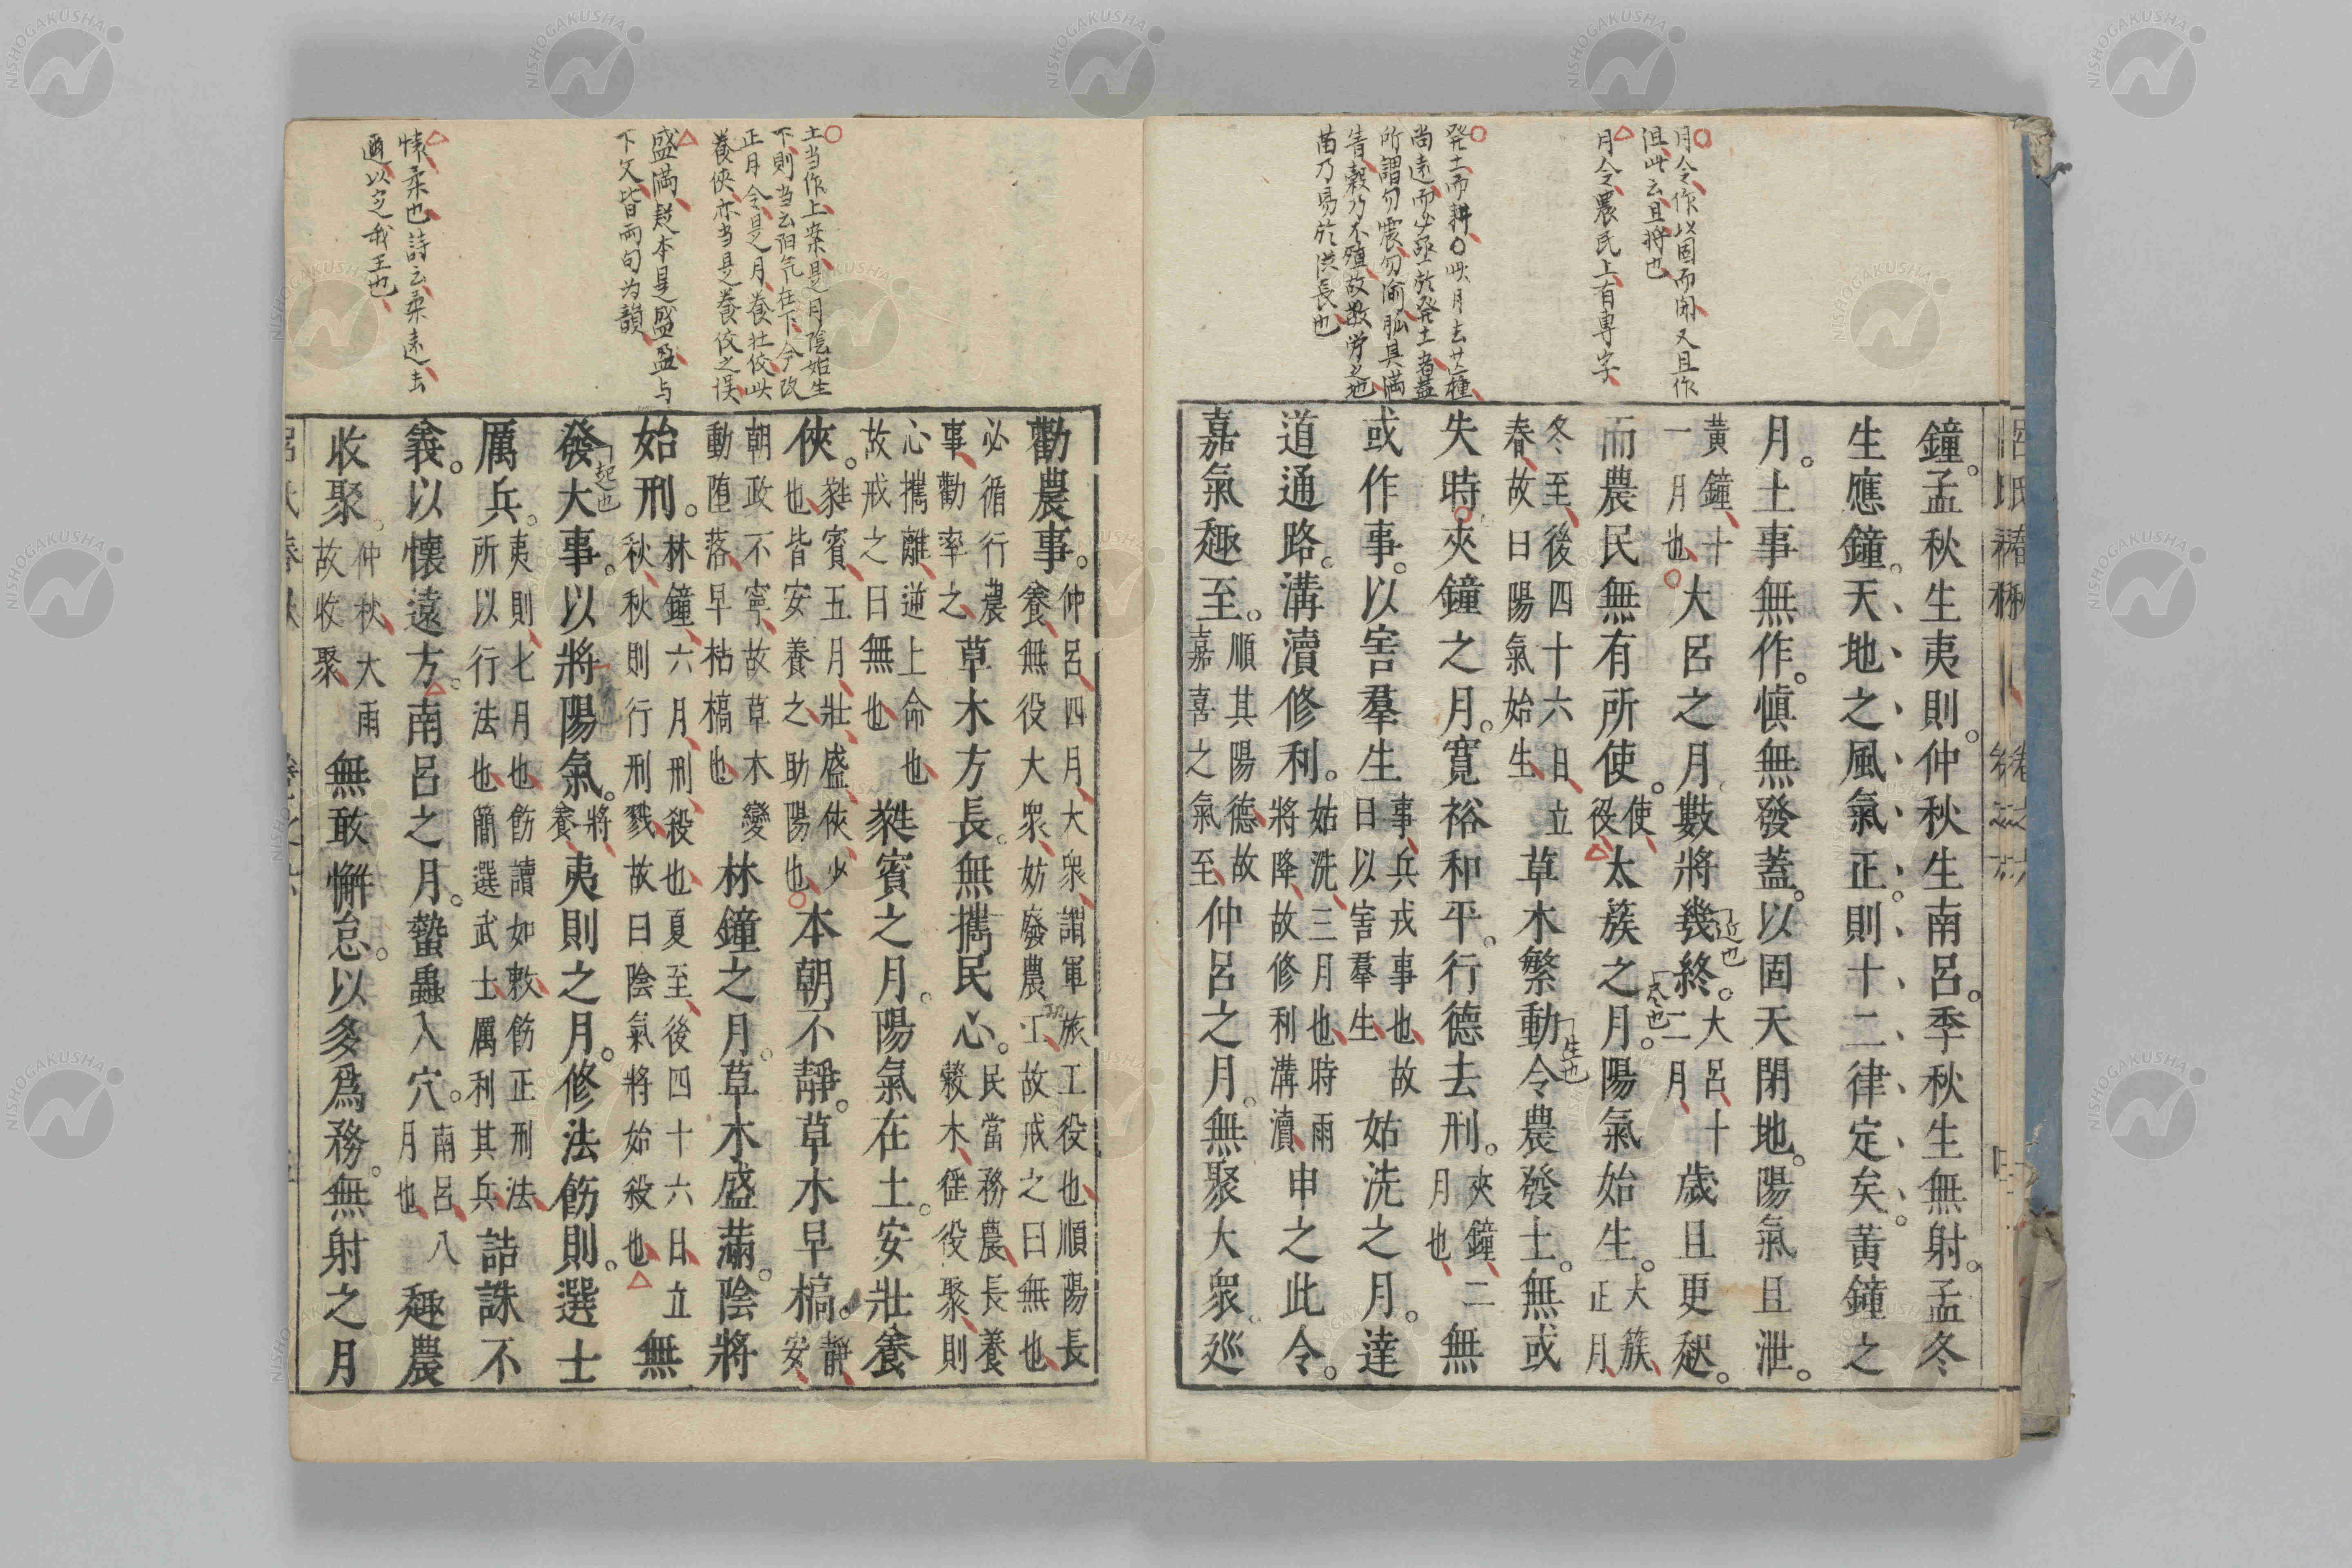 月令作以固而閉又且作
沮此云且將也
月令農民上有専字
発土而耕〇此月去廿種
尚遠而必亟於発土者蓋
所謂勿震勿渝脈其満
眚穀乃不殖故教労之也
苗乃易於洪長也
鐘。孟秋生夷則。仲秋生南呂。季秋生無射。孟冬
生應鐘。天地之風氣正。則十二律定矣。黃鐘之
月。土事無作。愼無發蓋。以固天閉地。陽氣且泄。
黃鐘十一月也大呂之月。數將幾終。大呂十二月歲且更起。
近也
而農民無有所使。使役太簇之月。陽氣始生。大簇正月
冬至後四十六日立春故曰陽氣始生草木繁動令農發土。無或
生也
失時。夾鐘之月。寬裕和平。行德去刑。夾鐘二月也無
或作事。以害羣生事兵戎事也故曰以害羣生姑洗之月。達
道通路。溝瀆修利。姑洗三月也時雨將降故修利溝瀆申之此令。
嘉氣趣至。順其陽德故嘉喜之氣至仲呂之月。無聚大衆。巡
土当作上案是月陰始生
下則当云阳气在下今改
正月令是月養壮佼此
養俠亦当是養佼之误
盛満疑本是盛盈与
下文皆兩句为韻
懐柔也詩云柔遠去
邇以定我王也
勸農事。仲呂四月大衆謂軍旅工役也順陽長養無役大衆妨廢農工故戒之曰無也
必循行農事勸率之草木方長。無攜民心。民當務農長養穀木徭役聚則
心攜離逆上命也故戒之曰無也蕤賓之月。陽氣在土。安壯養
俠。蕤賓五月壯盛俠少也皆安養之助陽也本朝不靜。草木早槁。靜安
朝政不寧故草木變動堕落早枯槁也林鐘之月。草木盛滿。陰將
始刑。林鐘六月刑殺也夏至後四十六日立秋秋則行刑戮故曰陰氣將始殺也無
發大事。以將陽氣。將養夷則之月。修法飭則。選士
起也
厲兵。夷則七月也飭讀如敕飭正刑法所以行法也簡選武士厲利其兵詰誅不
義。以懷遠方。南呂之月。蟄蟲入穴。南呂八月也趣農
收聚。仲秋大雨故收聚無敢懈怠。以多爲務。無射之月
NISHOGAKUSHA